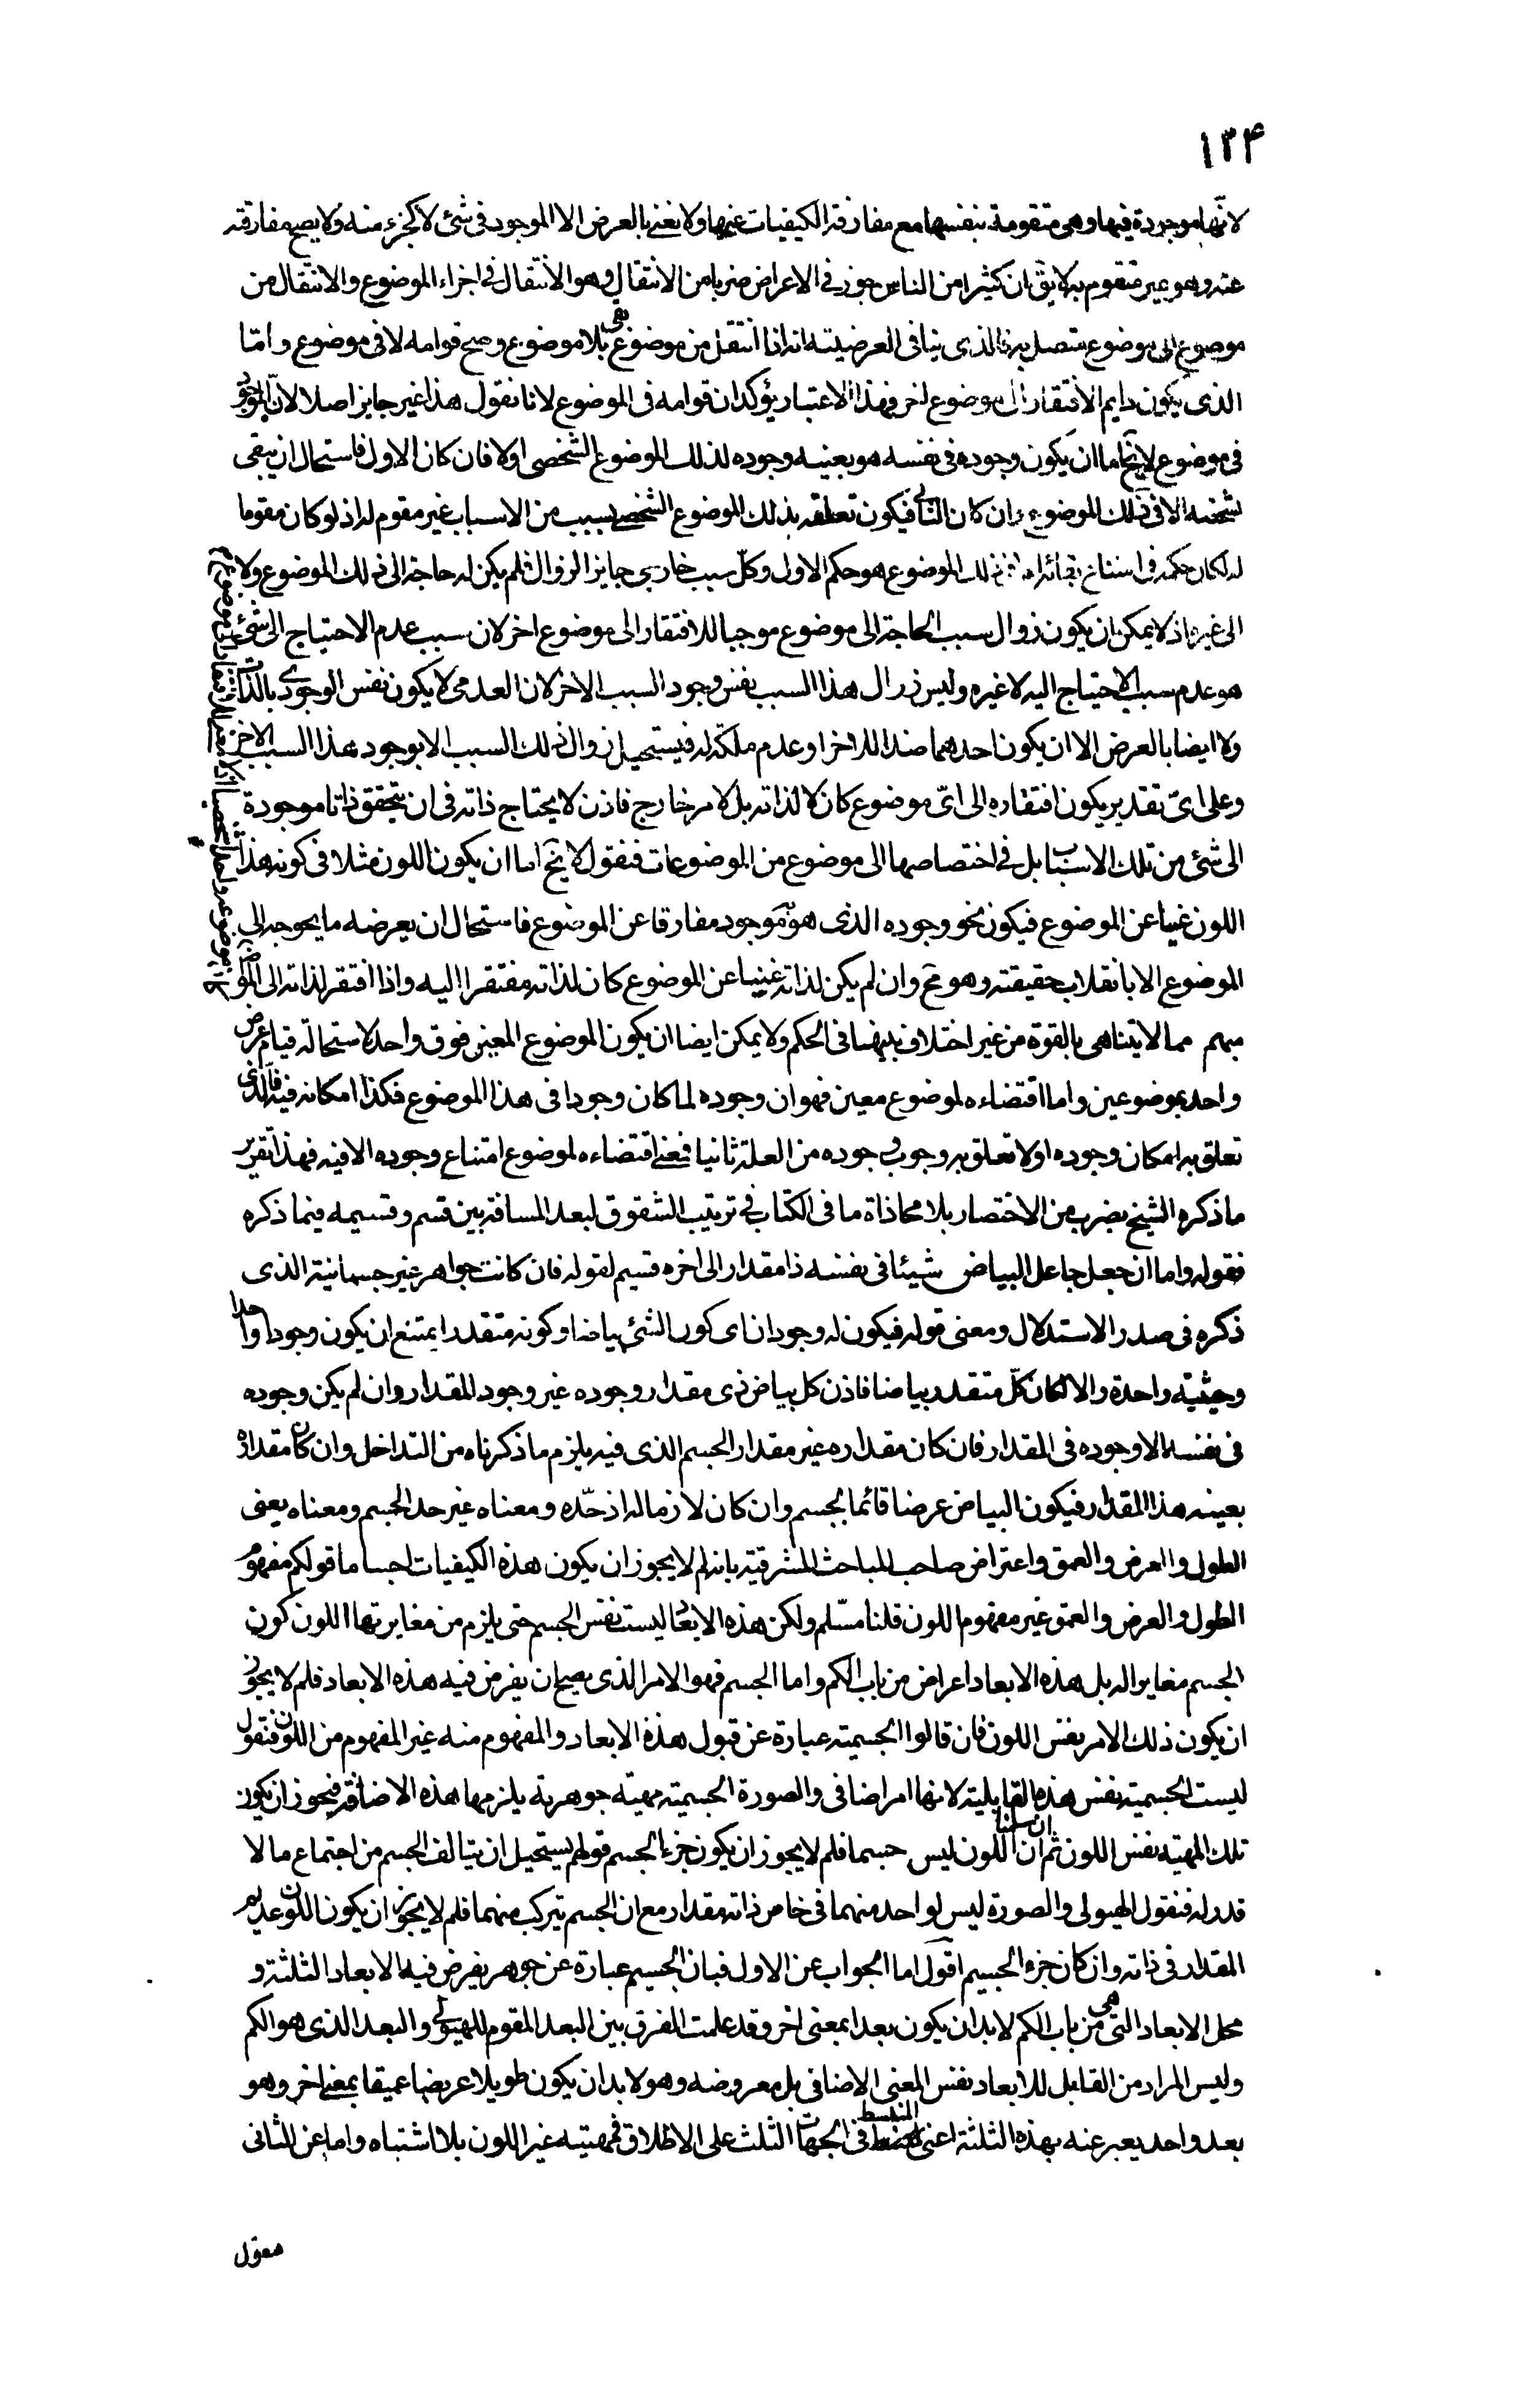 ١٣۴
لانّها موجودة فيها وهى متقومة بنفسها مع مفارقة الكيفيات عنها ولا نعنى بالعرض الا الموجود فى شئ لا كجزء منه ولا يصح مفارقته
عنه وهو غير متقوم به لا يق ان كثيرا من الناس جوز فى الاعراض ضربا من الانتقال وهو الانتقال فى اجزاء الموضوع والانتقال من
موضوع الى موضوع متصل به الذى ينافى العرضيته انه اذا انتقل من موضوع بقى بلا موضوع وصح قوامه لا فى موضوع و امّا
الذى يكون دايم الافتقار الى موضوع اخر فهذا الاعتبار يؤكد ان قوامه فى الموضوع لانا نقول هذا غير جايز اصلا لانّ الموجود
فى موضوع لا يخ اما ان يكون وجوده فى نفسه هو بعينه وجوده لذلك الموضوع الشخصى او لا فان كان الاول فاستحال ان يبقى
شخصه الا فى ذلك الموضوع وان كان الثانى فيكون تعلقه بذلك الموضوع الشخصى بسبب من الاسباب غير مقوم له اذ لو كان مقوما
له لكان حكمه فى امتناع بقائه ذلك الموضوع هو حكم الاول وكلّ سبب خارجى جايز الزوال فلم يكن له حاجة الى ذلك الموضوع ولا
الى غيره اذ لا يمكن ان يكون زوال سبب الحاجة الى موضوع موجبا للافتقار الى موضوع اخر لان سبب عدم الاحتياج الى شئ
هو عدم سبب الاحتياج اليه لا غيره وليس زوال هذا السبب نفس وجود السبب الاخر لان العدمى لا يكون نفس الوجودى بالذات
ولا ايضا بالعرض الا ان يكون احدهما ضدا للاخر او عدم ملكة له فيستحيل زوال ذلك السبب الا بوجود هذا السبب الاخر
وعلى اىّ تقدير يكون افتقاره الى اىّ موضوع كان لا لذاته بل لامر خارج فاذن لا يحتاج ذاته فى ان يتحقق ذاتا موجودة
الى شئ من تلك الاسباب بل فى اختصاصها الى موضوع من الموضوعات فنقول لا يخ اما ان يكون اللون مثلا فى كونه هذا
اللون غنيا عن الموضوع فيكون نحو وجوده الذى هو به موجود مفارقا عن الموضوع فاستحال ان يعرضه ما يحوجه الى
الموضوع الا بانقلاب حقيقته وهو مح وان لم يكن لذاته غنيا عن الموضوع كان لذاته مفتقرا اليه واذا افتقر لذاته الى
مبهم مما لا يتناهى بالقوة من غير اختلاف بينها فى الحكم ولا يمكن ايضا ان يكون الموضوع المعين فوق واحد لاستحالة قيام عرض
واحد بموضوعين واما اقتضاءه لموضوع معين فهو ان وجوده لما كان وجودا فى هذا الموضوع فكذا امكانه فيه فالذى
تعلق به امكان وجوده اولا تعلق به وجوب وجوده من العلة ثانيا فمعنى اقتضاءه لموضوع امتناع وجوده الا فيه فهذا تقرير
ما ذكره الشيخ بضرب من الاختصار بلا محاذاة ما فى الكتاب فى ترتيب الشقوق لبعد المسافة بين قسم وقسيمه فيما ذكره
فقوله واما ان جعل جاعل البياض شيئا فى نفسه ذا مقدار الى اخره قسيم لقوله فان كانت جواهر غير جسمانية الذى
ذكره فى صدر الاستدلال ومعنى قوله فيكون له وجودان اى كون الشئ بياضا وكونه متقدرا يمتنع ان يكون وجودا واحدا
وحيثية واحدة والا لكان كلّ متقدر بياضا فاذن كل بياض ذى مقدار وجوده غير وجود المقدار وان لم يكن وجوده
فى نفسه الا وجوده فى المقدار فان كان مقداره غير مقدار الجسم الذى فيه يلزم ما ذكرناه من التداخل وان كان مقداره
بعينه هذا المقدار فيكون البياض عرضا قائما بالجسم وان كان لازما له اذ حدّه ومعناه غير حد الجسم ومعناه يعنى
الطول والعرض والعمق واعتراض صاحب المباحث المشرقية بانه لم لا يجوز ان يكون هذه الكيفيات اجساما قولكم مفهوم
الطول والعرض والعمق غير مفهوم اللون قلنا مسّلم ولكن هذه الابعاد ليست نفس الجسم حتى يلزم من مغايرتها اللون كون
الجسم مغايرا له بل هذه الابعاد اعراض من باب الكم واما الجسم فهو الامر الذى يصح ان يفرض فيه هذه الابعاد فلم لا يجوز
ان يكون ذلك الامر نفس اللون فان قالوا الجسمية عبارة عن قبول هذه الابعاد والمفهوم منه غير المفهوم من اللون فنقول
ليست الجسمية نفس هذه القابلية لانها امر اضافى والصورة الجسمية مهية جوهرية يلزمها هذه الاضافة فيجوز ان يكون
تلك المهية نفس اللون ثم ان سلمنا ان اللون ليس جسما فلم لا يجوز ان يكون جزء الجسم قولهم يستحيل ان يتالف الجسم من اجتماع ما لا
قدر له فنقول الهيولى والصورة ليس لواحد منهما فى خاص ذاته مقدار مع ان الجسم يتركب منهما فلم لا يجوز ان يكون اللون عديم
المقدار فى ذاته وان كان جزء الجسم اقول اما الجواب عن الاول فبان الجسم عبارة عن جوهر يفرض فيه الابعاد الثلثة و
محل الابعاد التى هى من باب الكم لا بد ان يكون بعدا بمعنى اخر وقد علمت الفرق بين البعد المقوم للهيولى والبعد الذى هو الكم
وليس المراد من القابل للابعاد نفس المعنى الاضافى بل معروضه وهو لا بد ان يكون طويلا عريضا عميقا بمعنى اخر وهو
بعد واحد يعبر عنه بهذه الثلثة اعنى المنبسط فى الجهات الثلث على الاطلاق فمهيته غير اللون بلا اشتباه واما عن الثانى